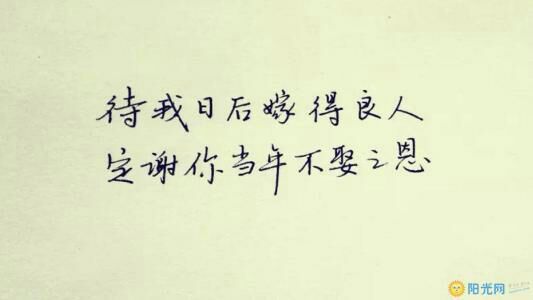 待我日后嫁得良人
定谢你当年不娶之恩
阳光网